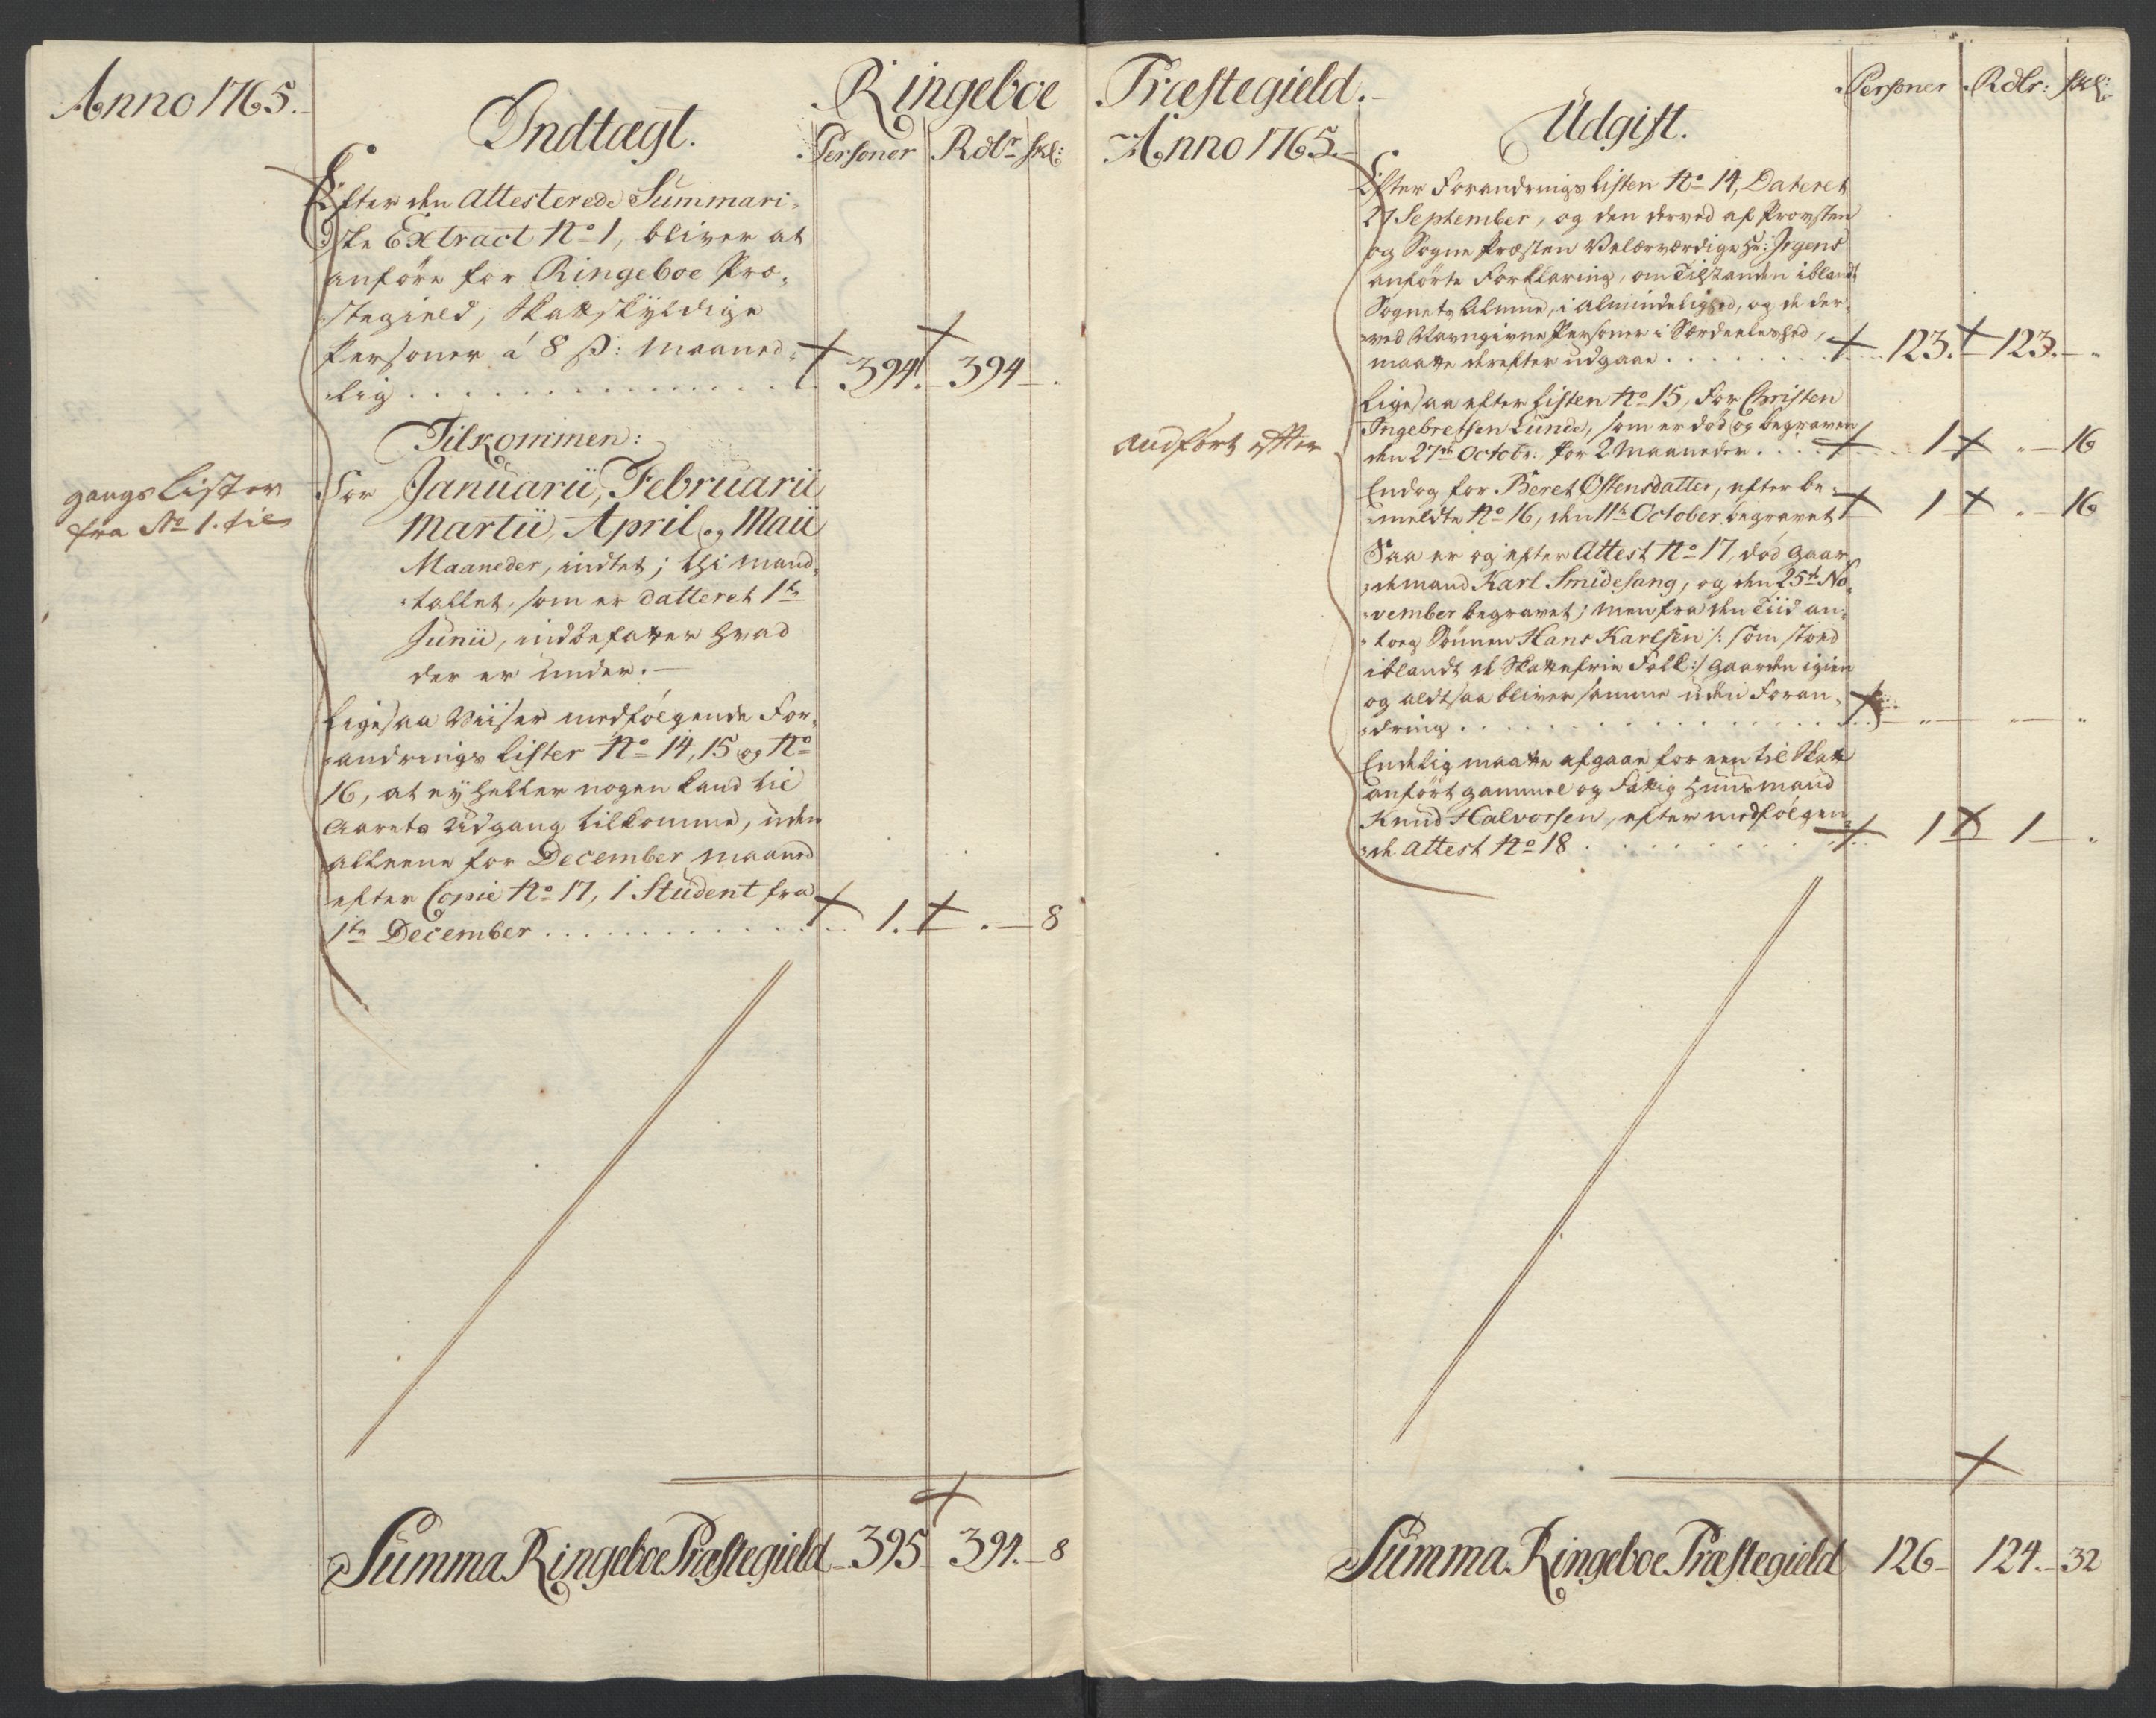 Anno 1765.
Ringeboe
Indtægt.
Personer Rdlr skl:
Efter den Attesterede Summari-
ske Extract No 1, bliver at
anføre for Ringeboe Præ-
stegield, Skattskÿldige
Personer á 8 s: maaned-
lig . . . . 394. 394 - .
Tilkommen:
gangs Lister
fra No 1. til
For Januarii, Februarii
Martii, April og Maii
Maaneder, indtet; thi mand-
tallet, som er datteret 1te
Junii, indbefatter hvad
der er under. -
Ligesaa Viiser medfølgende For-
andrings Lister No 14, 15 og No
16, at eÿ heller nogen kand til
Aarets Udgang tilkomme, uden
alleene for December maaned
efter Copie No 17, 1 Student fra
1te December . . . . 1. . - 8
Summa Ringeboe Præstegield 395 394. - 8
Præstegield.
Anno 1765.
Udgift.
Personer Rdlr: skl:
Efter Forandrings Listen No 14, Dateret
27 September, og den derved af Provsten
og Sogne Præsten Velærværdige Hr: Irgens
anførte Forklaring, om Tilstanden iblandt
Sognets Almue, i Almindelighed, og de der-
ved Navngivne Personer i Særdeeleshed,
maatte derefter udgaae . . . . 123. 123. - "
Ligesaa efter Listen No 15, For Christen
Ingebretsen Lunde, som er død og begraven
andført efter
den 27de Octobr: for 2 Maaneder . . . . 1 " - 16
Endog for Beret Østensdatter, efter be-
meldte No 16, den 11te October begravet 1 " - 16
Saa er og efter Attest No 17, død Gaar-
demand Karl Smidesang, og den 25de No-
vember begravet; men fra den Tiid an-
toeg Sønnen Hans Karlsen /: som stoed
iblandt de Skattefrie Folk :/ gaarden igien
og altsaa bliver samme uden Foran-
dring . . . . " - " - "
Endelig maatte afgaae for een til Skatt
anført gammel og Fattig Huusmand
Knud Halvorsen, efter medfølgen-
de Attest No 18 . . . . 1 1 - "
Summa Ringeboe Præstegield 126 - 124. - 32